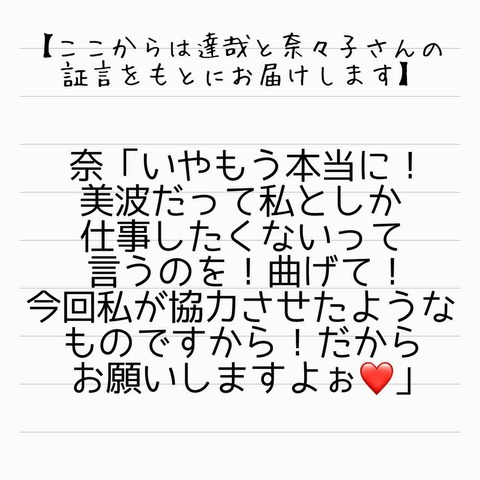 【ここからは達哉と奈々子さんの
証言をもとにお届けします】
奈「いやもう本当に！
美波だって私としか
仕事したくないって
言うのを！曲げて！
今回私が協力させたような
ものですから！だから
お願いしますよぉ❤️」